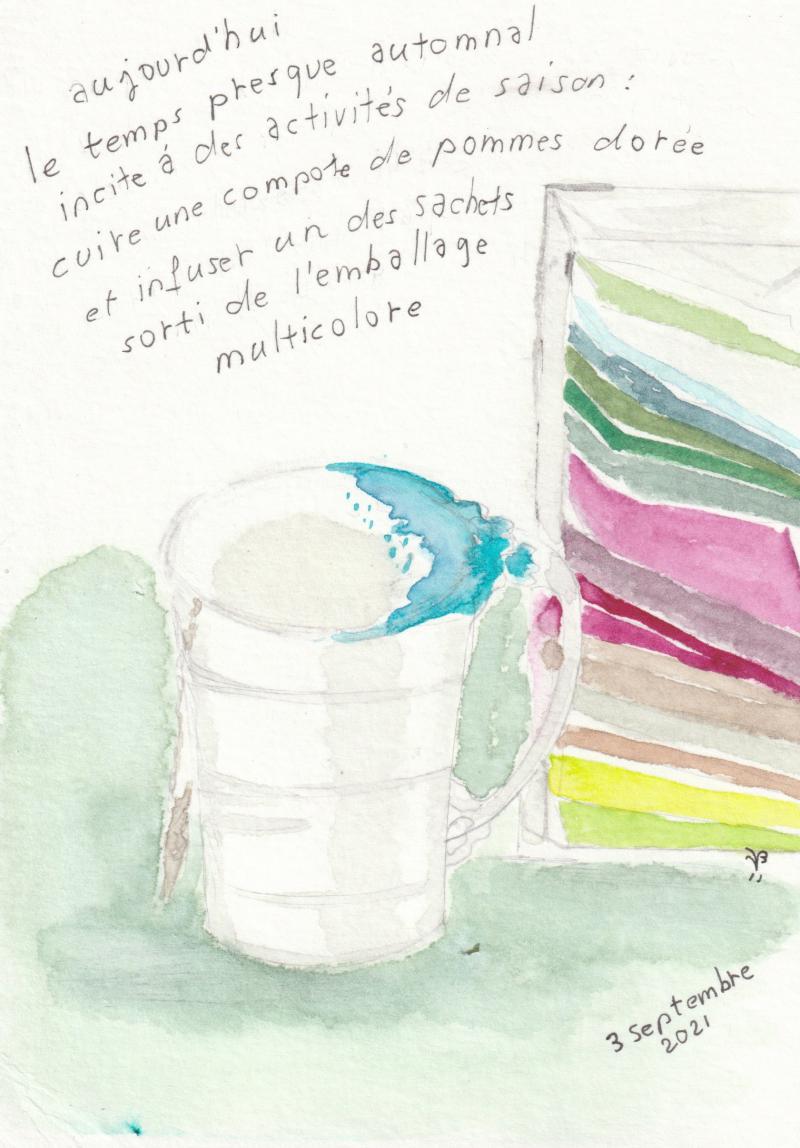 aujourd'hui
le temps presque automnal
incite à des activités de saison :
cuire une compote de pommes dorée
et infuser un des sachets
sorti de l'emballage
multicolore
3 septembre
2021